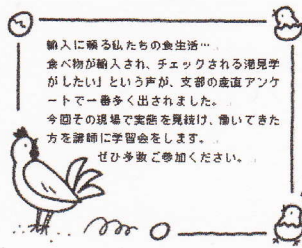 輸入に頼る私たちの食生活…
食べ物が輸入され、チェックされる港見学
がしたい」という声が、支部の産直アンケ
ートで一番多く出されました。
今回その現場で実態を見続け、働いてきた
方を講師に学習会をします。
ぜひ多数ご参加ください。